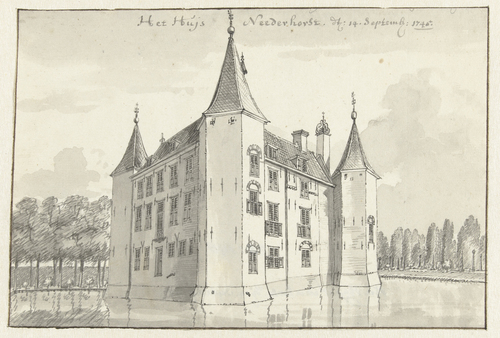 Het Huijs Nederhorst. d: 14. Septemb: 1745.